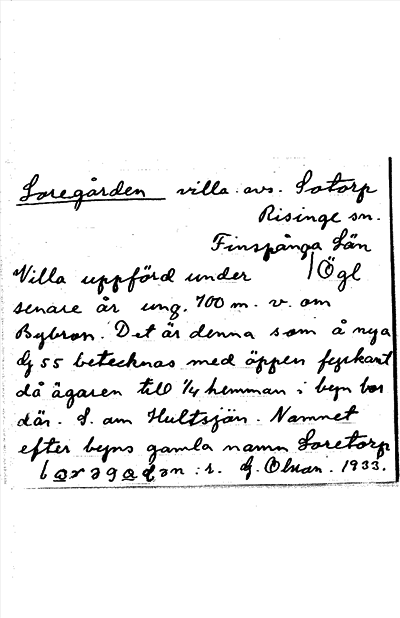 Loregården villa. avs. Lotorp
Risinge sn.
Finspånga Län
Villa uppförd under / Ögl
senare år ung. 700 m. v. om
Bybron. Det är denna som å nya
55 betecknas med öppen fyrkant
då ägaren till 1/4 hemman i byn bor
där. S. om Hultsjön. Namnet
efter byns gamla namn Loretorp
s. G. Olsson. 1933.